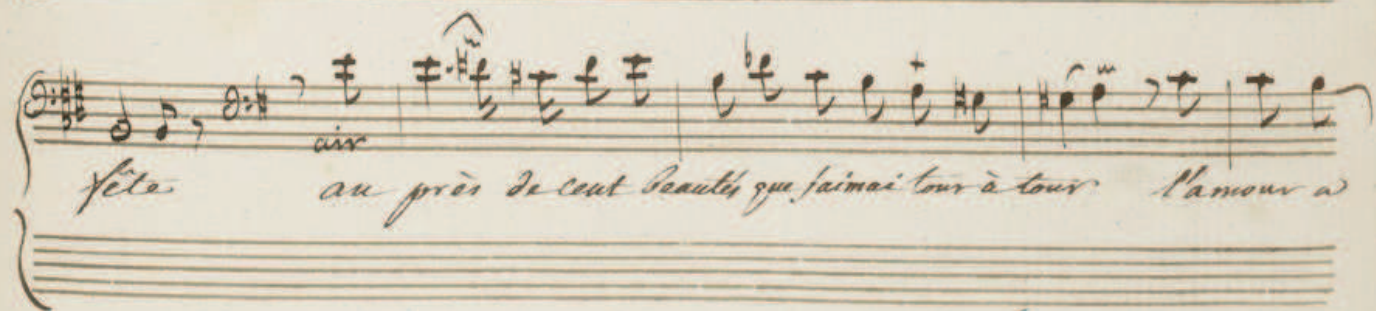 air
fête au près de cent beautés que j'aimai tour à tour l'amour a